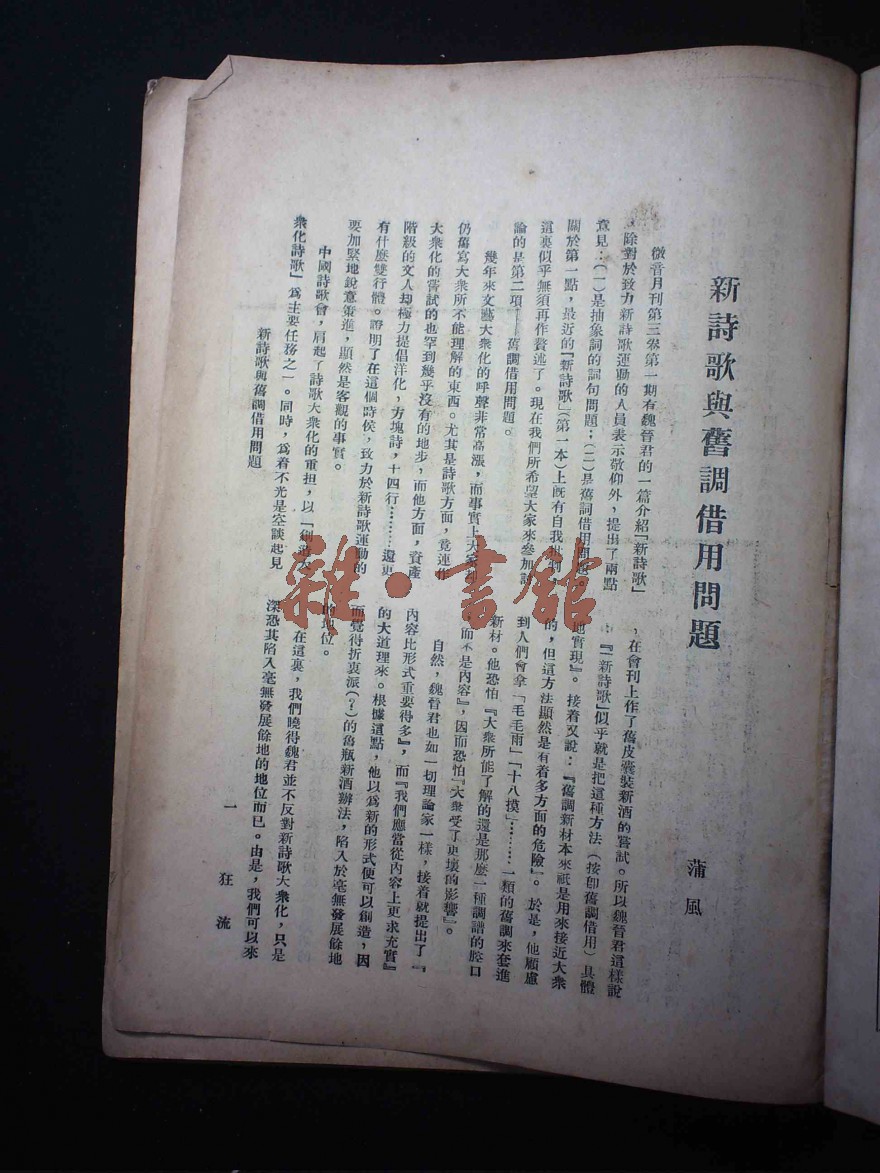 新詩歌與舊調借用問題
蒲風
微音月刊第三卷第一期有魏晉君的一篇介紹「新詩歌」
除對於致力新詩歌運動的人員表示敬仰外,提出了兩點
意見:(一)是抽象詞的詞句問題;(二)是舊詞借用問題。
關於第一點,最近的『新詩歌』(第一本)上既有自我批判,
這裏似乎無須再作贅述了。現在我們所希望大家來參加討
論的是第二項——舊調借用問題。
幾年來文藝大衆化的呼聲非常高漲,而事實上大家
仍舊寫大衆所不能理解的東西。尤其是詩歌方面,竟連作
大衆化的嘗試的也罕到幾乎沒有的地步,而他方面,資產
階級的文人却極力提倡洋化,方塊詩,十四行………還更
有什麼雙行體。證明了在這個時侯,致力於新詩歌運動的
要加緊地銳意策進,顯然是客觀的事實。
中國詩歌會,肩起了詩歌大衆化的重担,以「創造大
衆化詩歌」爲主要任務之一。同時,爲着不光是空談起見
新詩歌與舊調借用問題
,在會刊上作了舊皮囊裝新酒的嘗試。所以魏晉君這樣說
:『「新詩歌」似乎就是把這種方法(按卽舊調借用)具體
地實現』。接着又說:『舊調新材本來祇是用來接近大衆
的,但這方法顯然是有着多方面的危險』。於是,他顧慮
到人們會拿「毛毛雨」「十八摸」………一類的舊調來套進
新材。他恐怕『大衆所能了解的還是那麼一種調譜的腔口
,而不是內容』,因而恐怕『大衆受了更壞的影響』。
自然,魏晉君也如一切理論家一樣,接着就提出了『
內容比形式重要得多』,而『我們應當從內容上更求充實』
的大道理來。根據這點,他以爲新的形式便可以創造,因
而覺得折衷派(?)的舊瓶新酒辦法,陷入於毫無發展餘地
的地位。
在這裏,我們曉得魏君並不反對新詩歌大衆化,只是
深恐其陷入毫無發展餘地的地位而已。由是,我們可以來
一 狂流
雜·書館